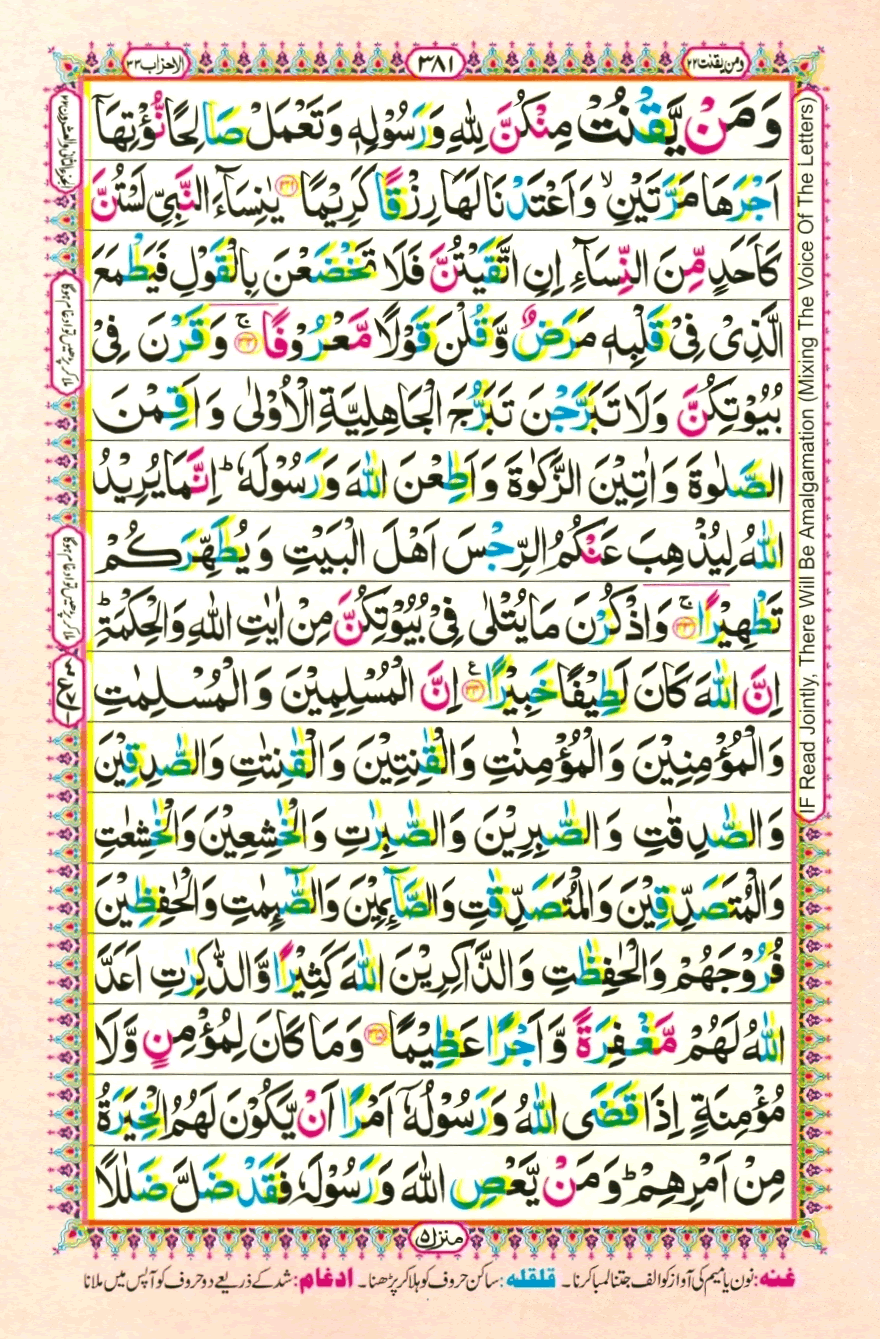 ومن یقنت ۲۲
۳۸۱
الاحزاب ۳۳
وَمَنْ یَّقْنُتْ مِنْكُنَّ لِلّٰهِ وَرَسُوْلِهٖ وَتَعْمَلْ صَالِحًا نُّؤْتِهَاۤ
اَجْرَهَا مَرَّتَیْنِ ۙ وَاَعْتَدْنَا لَهَا رِزْقًا كَرِیْمًا ۝۳۱ یٰنِسَآءَ النَّبِیِّ لَسْتُنَّ
كَاَحَدٍ مِّنَ النِّسَآءِ اِنِ اتَّقَیْتُنَّ فَلَا تَخْضَعْنَ بِالْقَوْلِ فَیَطْمَعَ
الَّذِیْ فِیْ قَلْبِهٖ مَرَضٌ وَّقُلْنَ قَوْلًا مَّعْرُوْفًا ۝۳۲ ۚ وَقَرْنَ فِیْ
بُیُوْتِكُنَّ وَلَا تَبَرَّجْنَ تَبَرُّجَ الْجَاهِلِیَّةِ الْاُوْلٰی وَاَقِمْنَ
الصَّلٰوةَ وَاٰتِیْنَ الزَّكٰوةَ وَاَطِعْنَ اللّٰهَ وَرَسُوْلَهٗ ؕ اِنَّمَا یُرِیْدُ
اللّٰهُ لِیُذْهِبَ عَنْكُمُ الرِّجْسَ اَهْلَ الْبَیْتِ وَیُطَهِّرَكُمْ
تَطْهِیْرًا ۝۳۳ ۚ وَاذْكُرْنَ مَا یُتْلٰی فِیْ بُیُوْتِكُنَّ مِنْ اٰیٰتِ اللّٰهِ وَالْحِكْمَةِ ؕ
اِنَّ اللّٰهَ كَانَ لَطِیْفًا خَبِیْرًا ۝۳۴ ع اِنَّ الْمُسْلِمِیْنَ وَالْمُسْلِمٰتِ
وَالْمُؤْمِنِیْنَ وَالْمُؤْمِنٰتِ وَالْقٰنِتِیْنَ وَالْقٰنِتٰتِ وَالصّٰدِقِیْنَ
وَالصّٰدِقٰتِ وَالصّٰبِرِیْنَ وَالصّٰبِرٰتِ وَالْخٰشِعِیْنَ وَالْخٰشِعٰتِ
وَالْمُتَصَدِّقِیْنَ وَالْمُتَصَدِّقٰتِ وَالصَّآىِٕمِیْنَ وَالصّٰٓىِٕمٰتِ وَالْحٰفِظِیْنَ
فُرُوْجَهُمْ وَالْحٰفِظٰتِ وَالذّٰكِرِیْنَ اللّٰهَ كَثِیْرًا وَّالذّٰكِرٰتِ اَعَدَّ
اللّٰهُ لَهُمْ مَّغْفِرَةً وَّاَجْرًا عَظِیْمًا ۝۳۵ وَمَا كَانَ لِمُؤْمِنٍ وَّلَا
مُؤْمِنَةٍ اِذَا قَضَی اللّٰهُ وَرَسُوْلُهٗۤ اَمْرًا اَنْ یَّكُوْنَ لَهُمُ الْخِیَرَةُ
مِنْ اَمْرِهِمْ ؕ وَمَنْ یَّعْصِ اللّٰهَ وَرَسُوْلَهٗ فَقَدْ ضَلَّ ضَلٰلًا
IF Read Jointly, There Will Be Amalgamation (Mixing The Voice Of The Letters)
الجزء الثانی والعشرون ۲۲
ملا کر پڑھیں تو ادغام ہوگا
ملا کر پڑھیں تو ادغام ہوگا
منزل ۵
غنہ: نون یا میم کی آواز کو الف جتنا لمبا کرنا۔ قلقلہ: ساکن حروف کو ہلا کر پڑھنا۔ ادغام: شد کے ذریعے دو حروف کو آپس میں ملانا